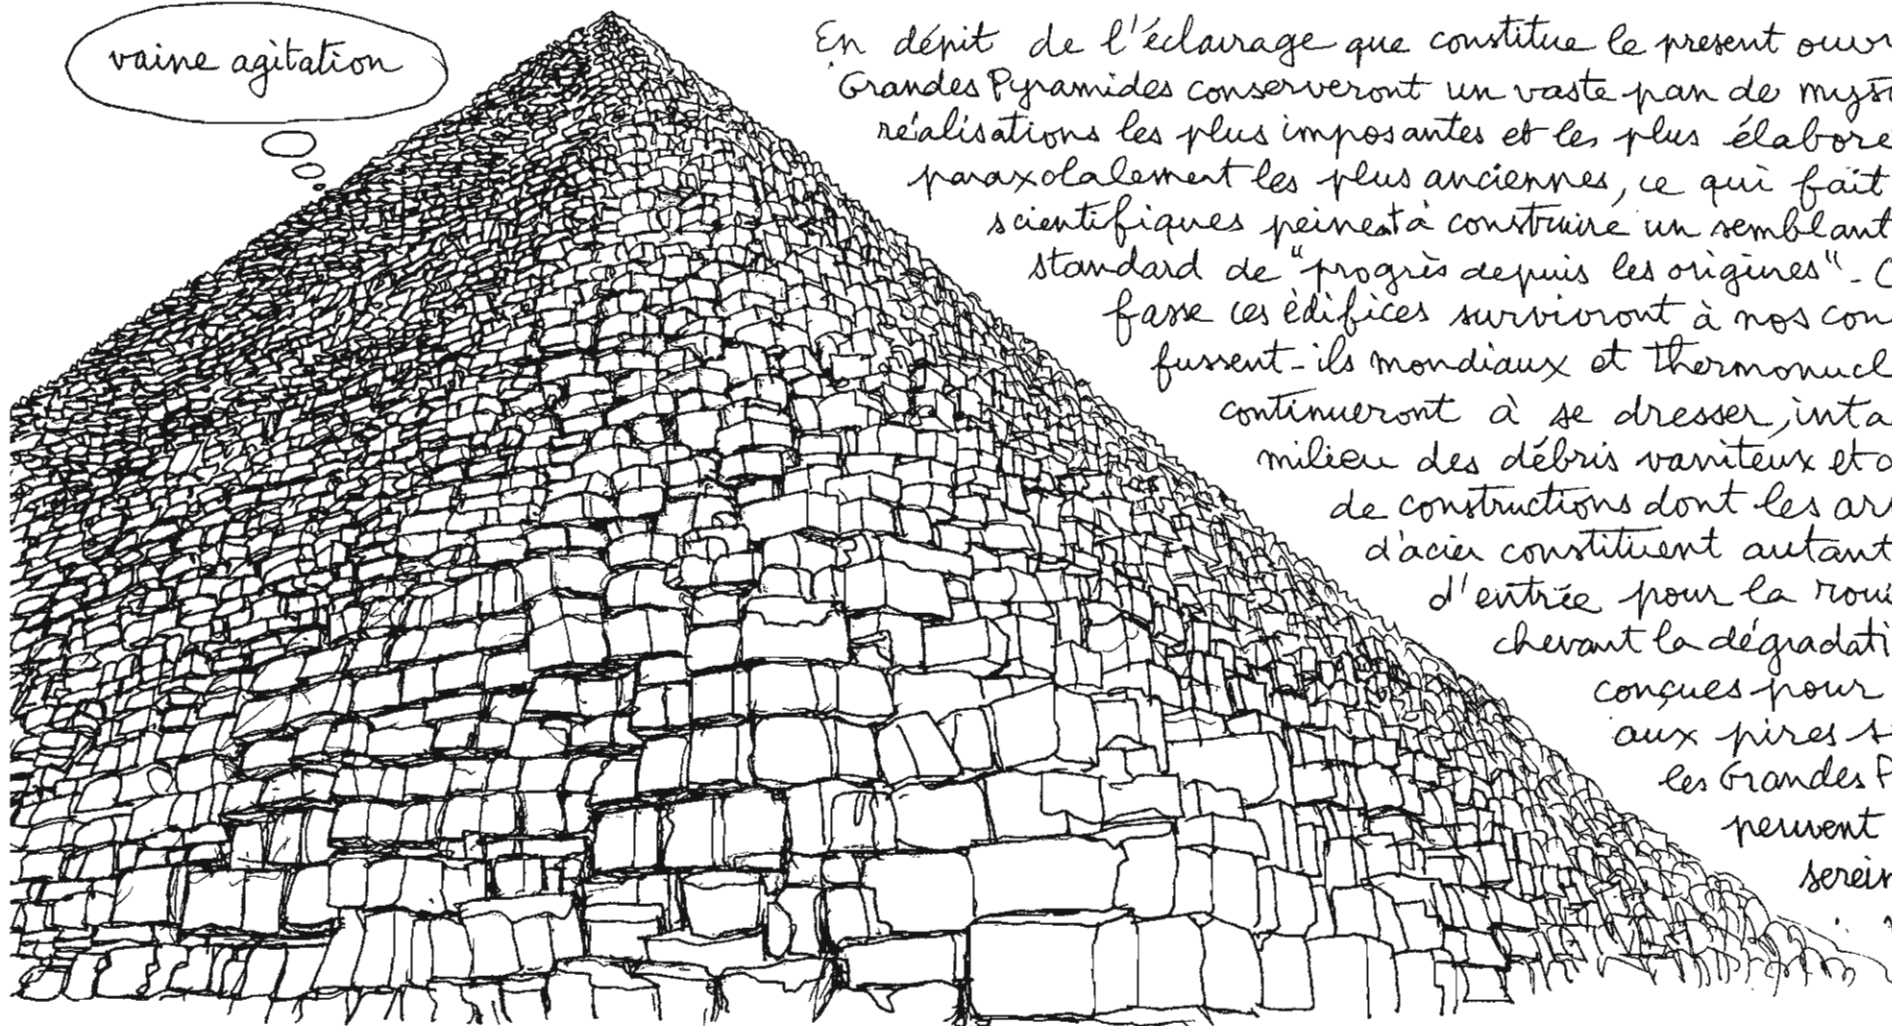 vaine agitation
En dépit de l'éclairage que constitue le present ouvr
Grandes Pyramides conserveront un vaste pan de myst
réalisations les plus imposantes et les plus élabore
paraxolalement les plus anciennes, ce qui fait
scientifiques peinent à construire un semblant
standard de "progrès depuis les origines" - C
fasse ces édifices survivront à nos con
fussent-ils mondiaux et thermonucl
continueront à se dresser, inta
milieu des débris vaniteux et o
de constructions dont les ar
d'acier constituent autant
d'entrée pour la roui
chevant la dégradati
conçues pour
aux pires s
les Grandes P
peuvent
serein